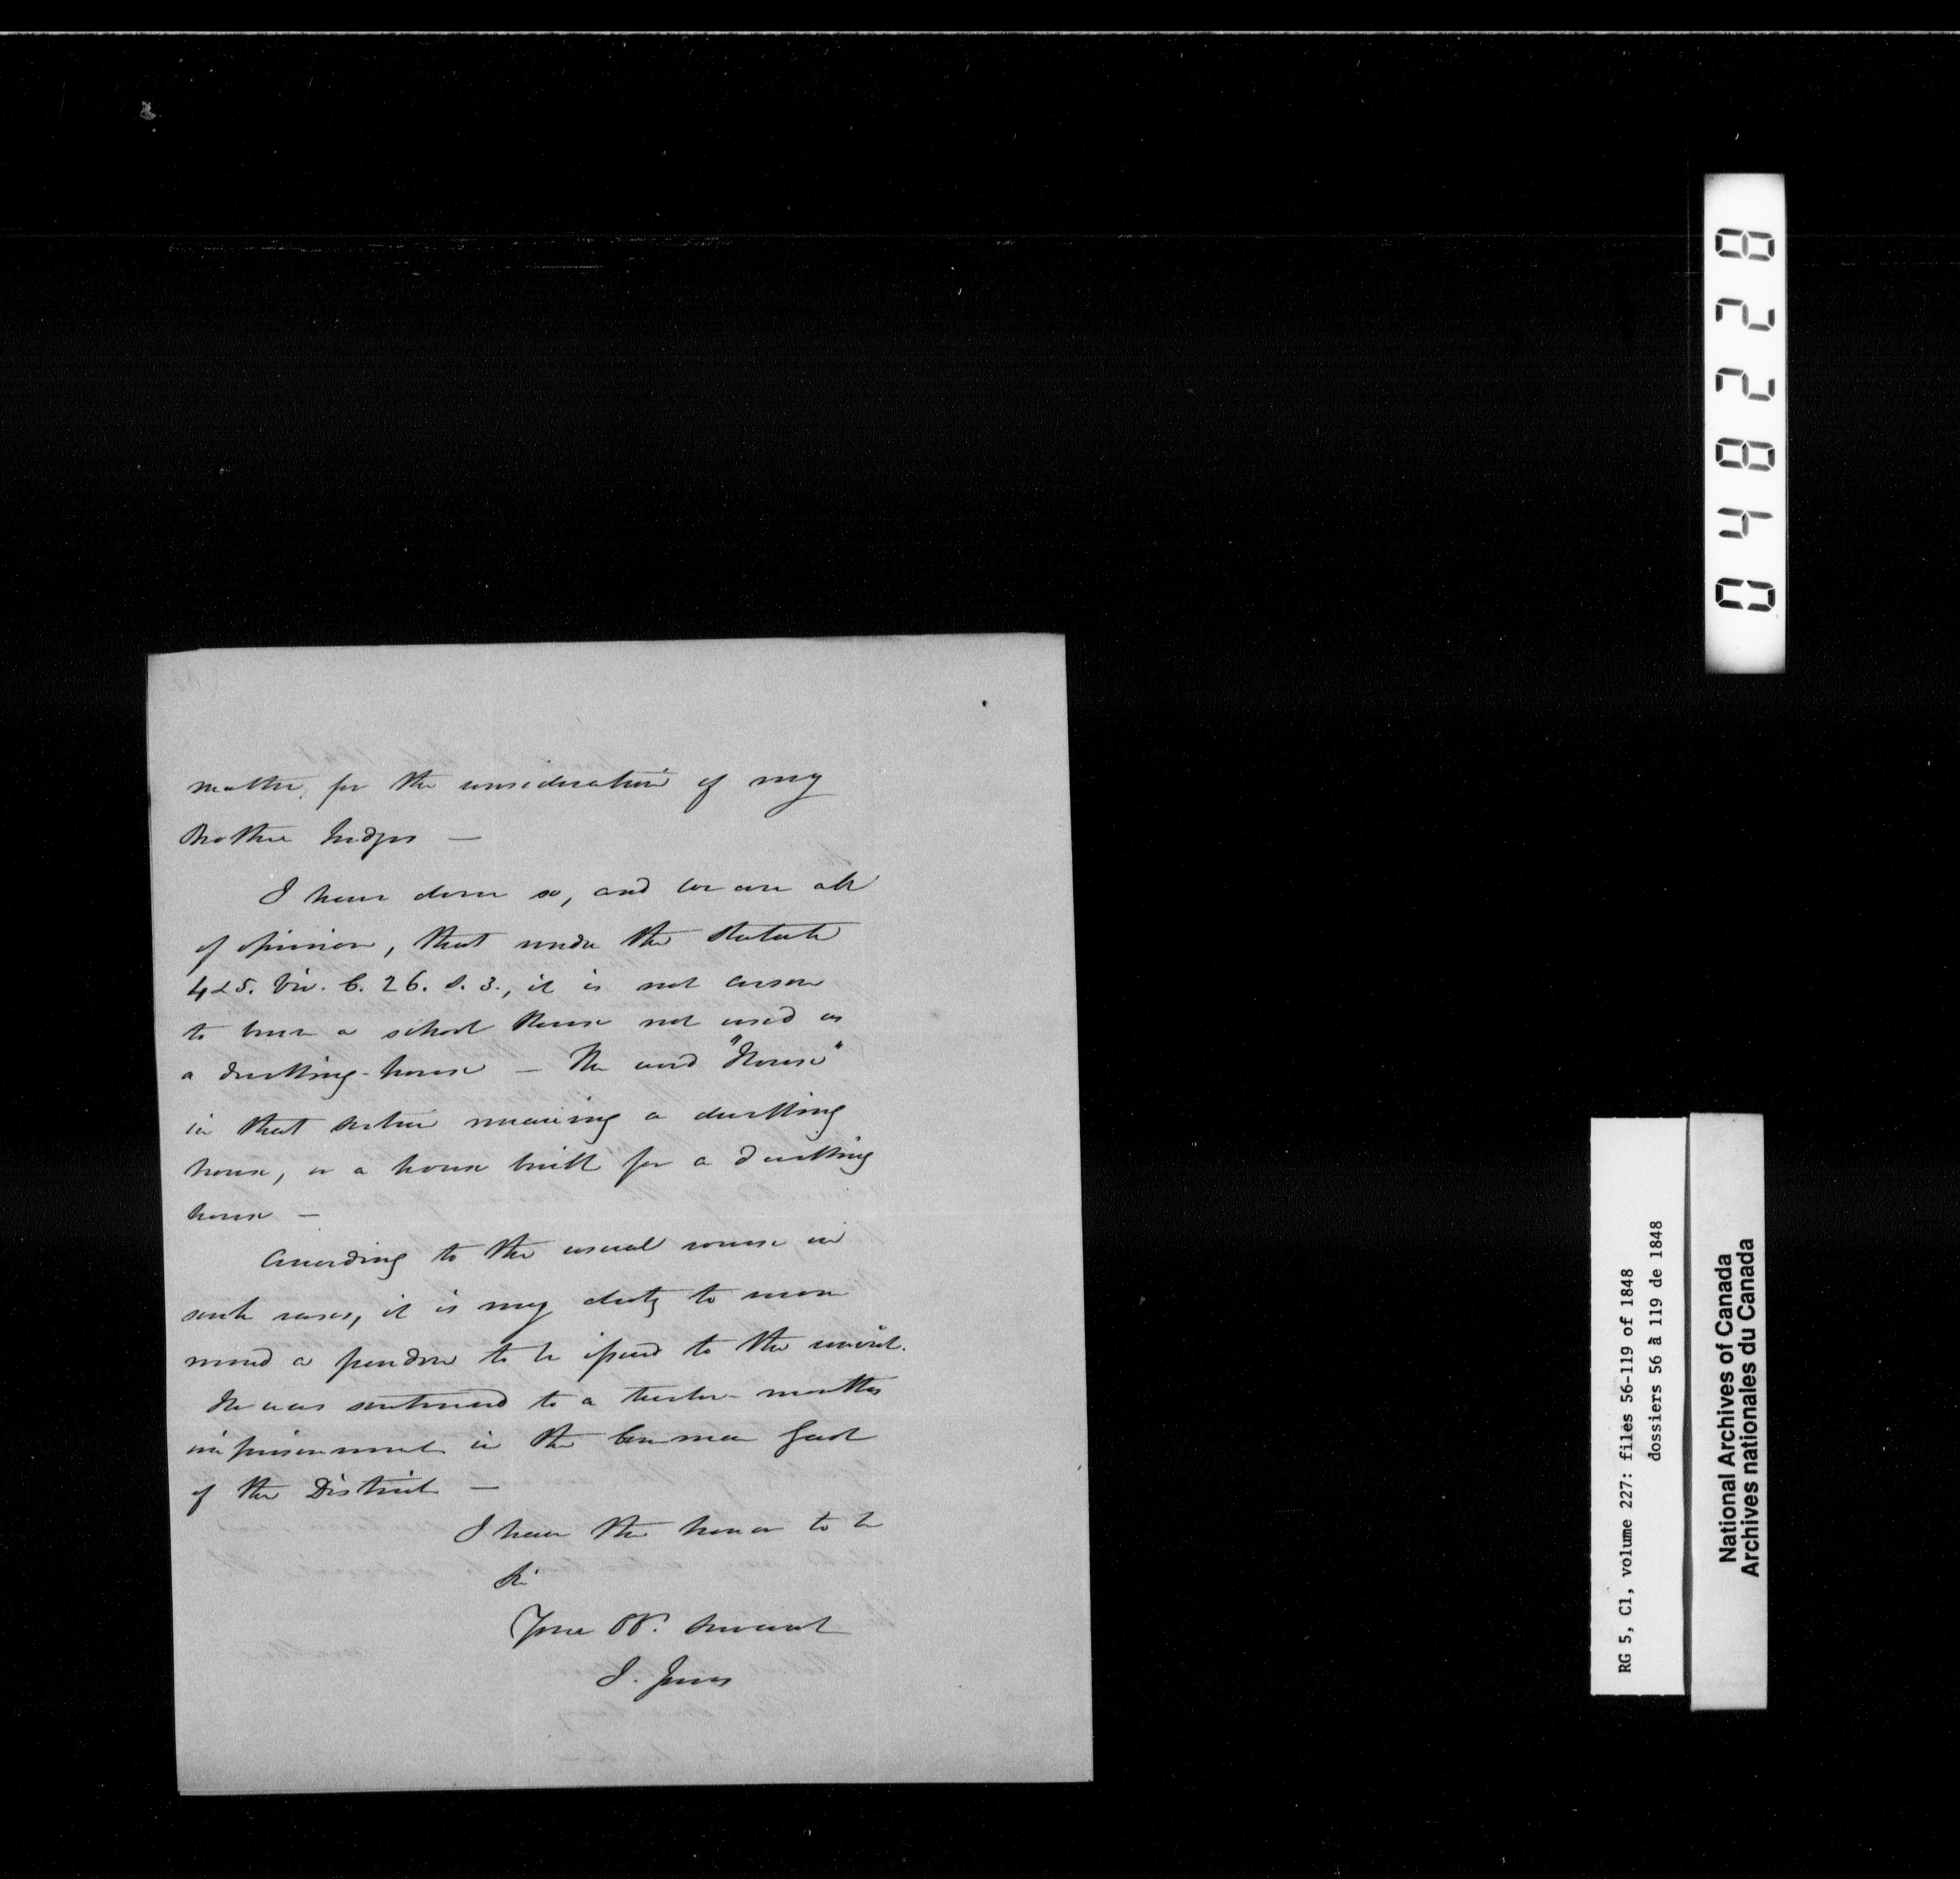 matter, for the consideration of my
Brother Judges —
I have done so, and we are all
of opinion, that under the statute
4 & 5. Vic. C. 26. s. 3., it is not arson
to burn a school House not used as
a dwelling-house — The word "House"
in that section meaning a dwelling
house, or a house built for a dwelling
house —
According to the usual course in
such cases, it is my duty to recom
mend a pardon to be issued to the convict.
He was sentenced to a twelve-months
imprisonment in the Common Gaol
of the District —
I have the honor to be
Sir
Your Ob. Servant
J. Jones
042228
RG 5, C1, volume 227: files 56-119 of 1848
dossiers 56 à 119 de 1848
National Archives of Canada
Archives nationales du Canada